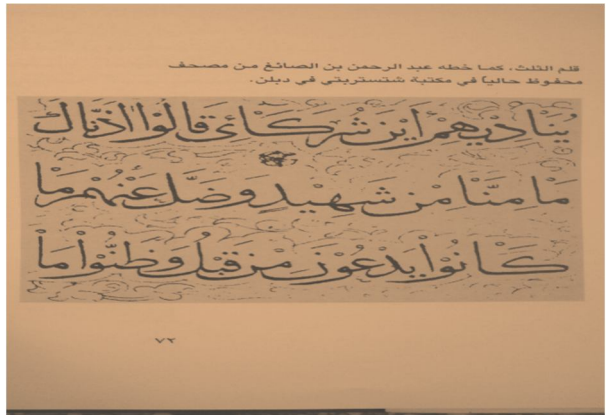 قلم الثلث، كما خطه عبد الرحمن بن الصائغ من مصحف
محفوظ حالياً في مكتبة شتستربتي في دبلن.
يُنَادِيهِمْ أَيْنَ شُرَكَائِى قَالُوٓا۟ ءَاذَنَّاكَ
مَا مِنَّا مِنْ شَهِيْدٍ وَضَلَّ عَنْهُمْ مَا
كَانُوْا يَدْعُوْنَ مِنْ قَبْلُ وَظَنُّوْا مَا
٧٣